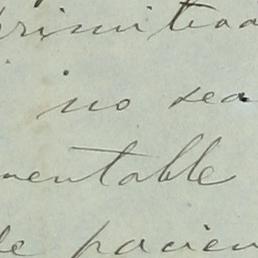 primitiva
no sea
mentable
de pacien